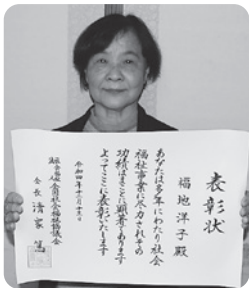 表彰状
福地洋子殿
あなたは多年にわたり社会
福祉事業に尽力されその
功績はまことに顕著であります
よってここに表彰いたします
令和四年十一月十三日
社会福祉法人 全国社会福祉協議会
会長 清家 篤